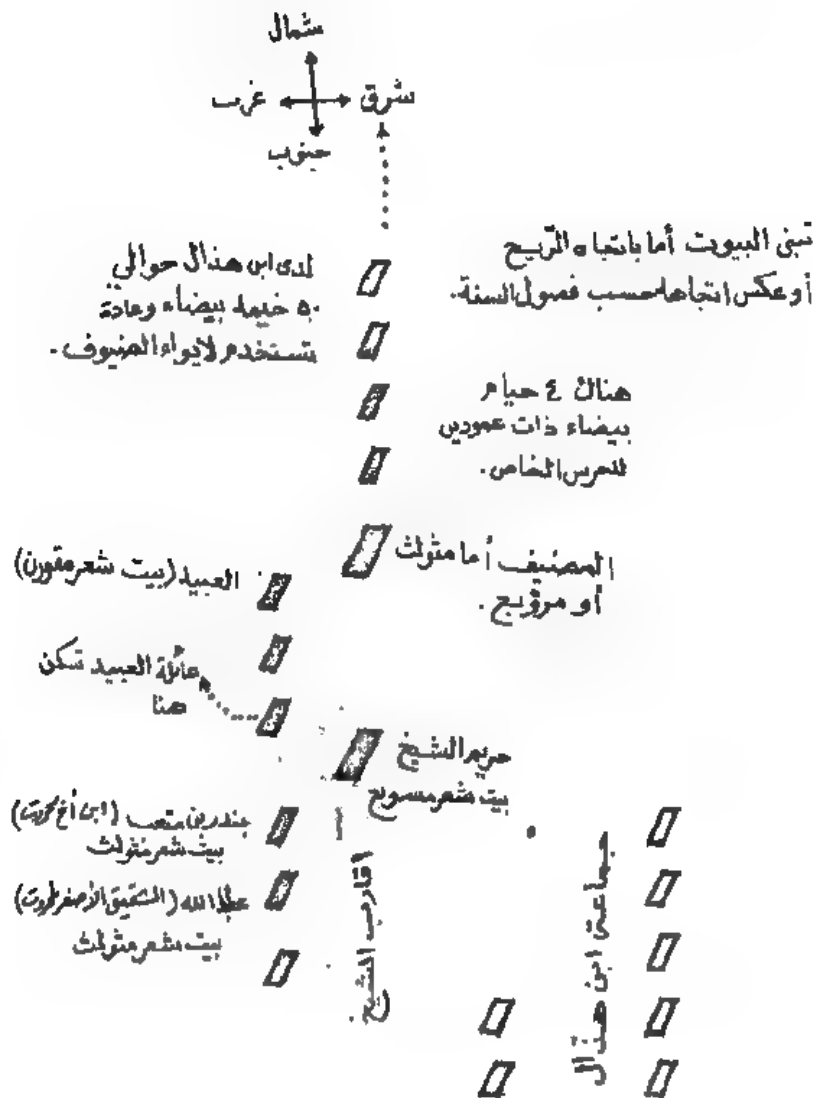 شمال
غرب
شرق
جنوب
تبنى البيوت أما باتجاه الريح
أو عكس اتجاهه حسب فصول السنة.
لدى ابن هذال حوالي
٥٠ خيمة بيضاء وعادة
تستخدم لايواء الضيوف.
هناك ٤ خيام
بيضاء ذات عمودين
للحرس الخاص.
المضيف أما مثولث
أو مروبع.
العبيد (بيت شعر مقورن)
عائلة العبيد تسكن
هنا
حريم الشيخ
بيت شعر مسوبع
بن متعب (ابن أخ محروت)
بيت شعر مثولث
عبدالله (الشقيق الأصغر لمحروت)
بيت شعر مثولث
اقارب الشيخ
جماعة ابن هذال